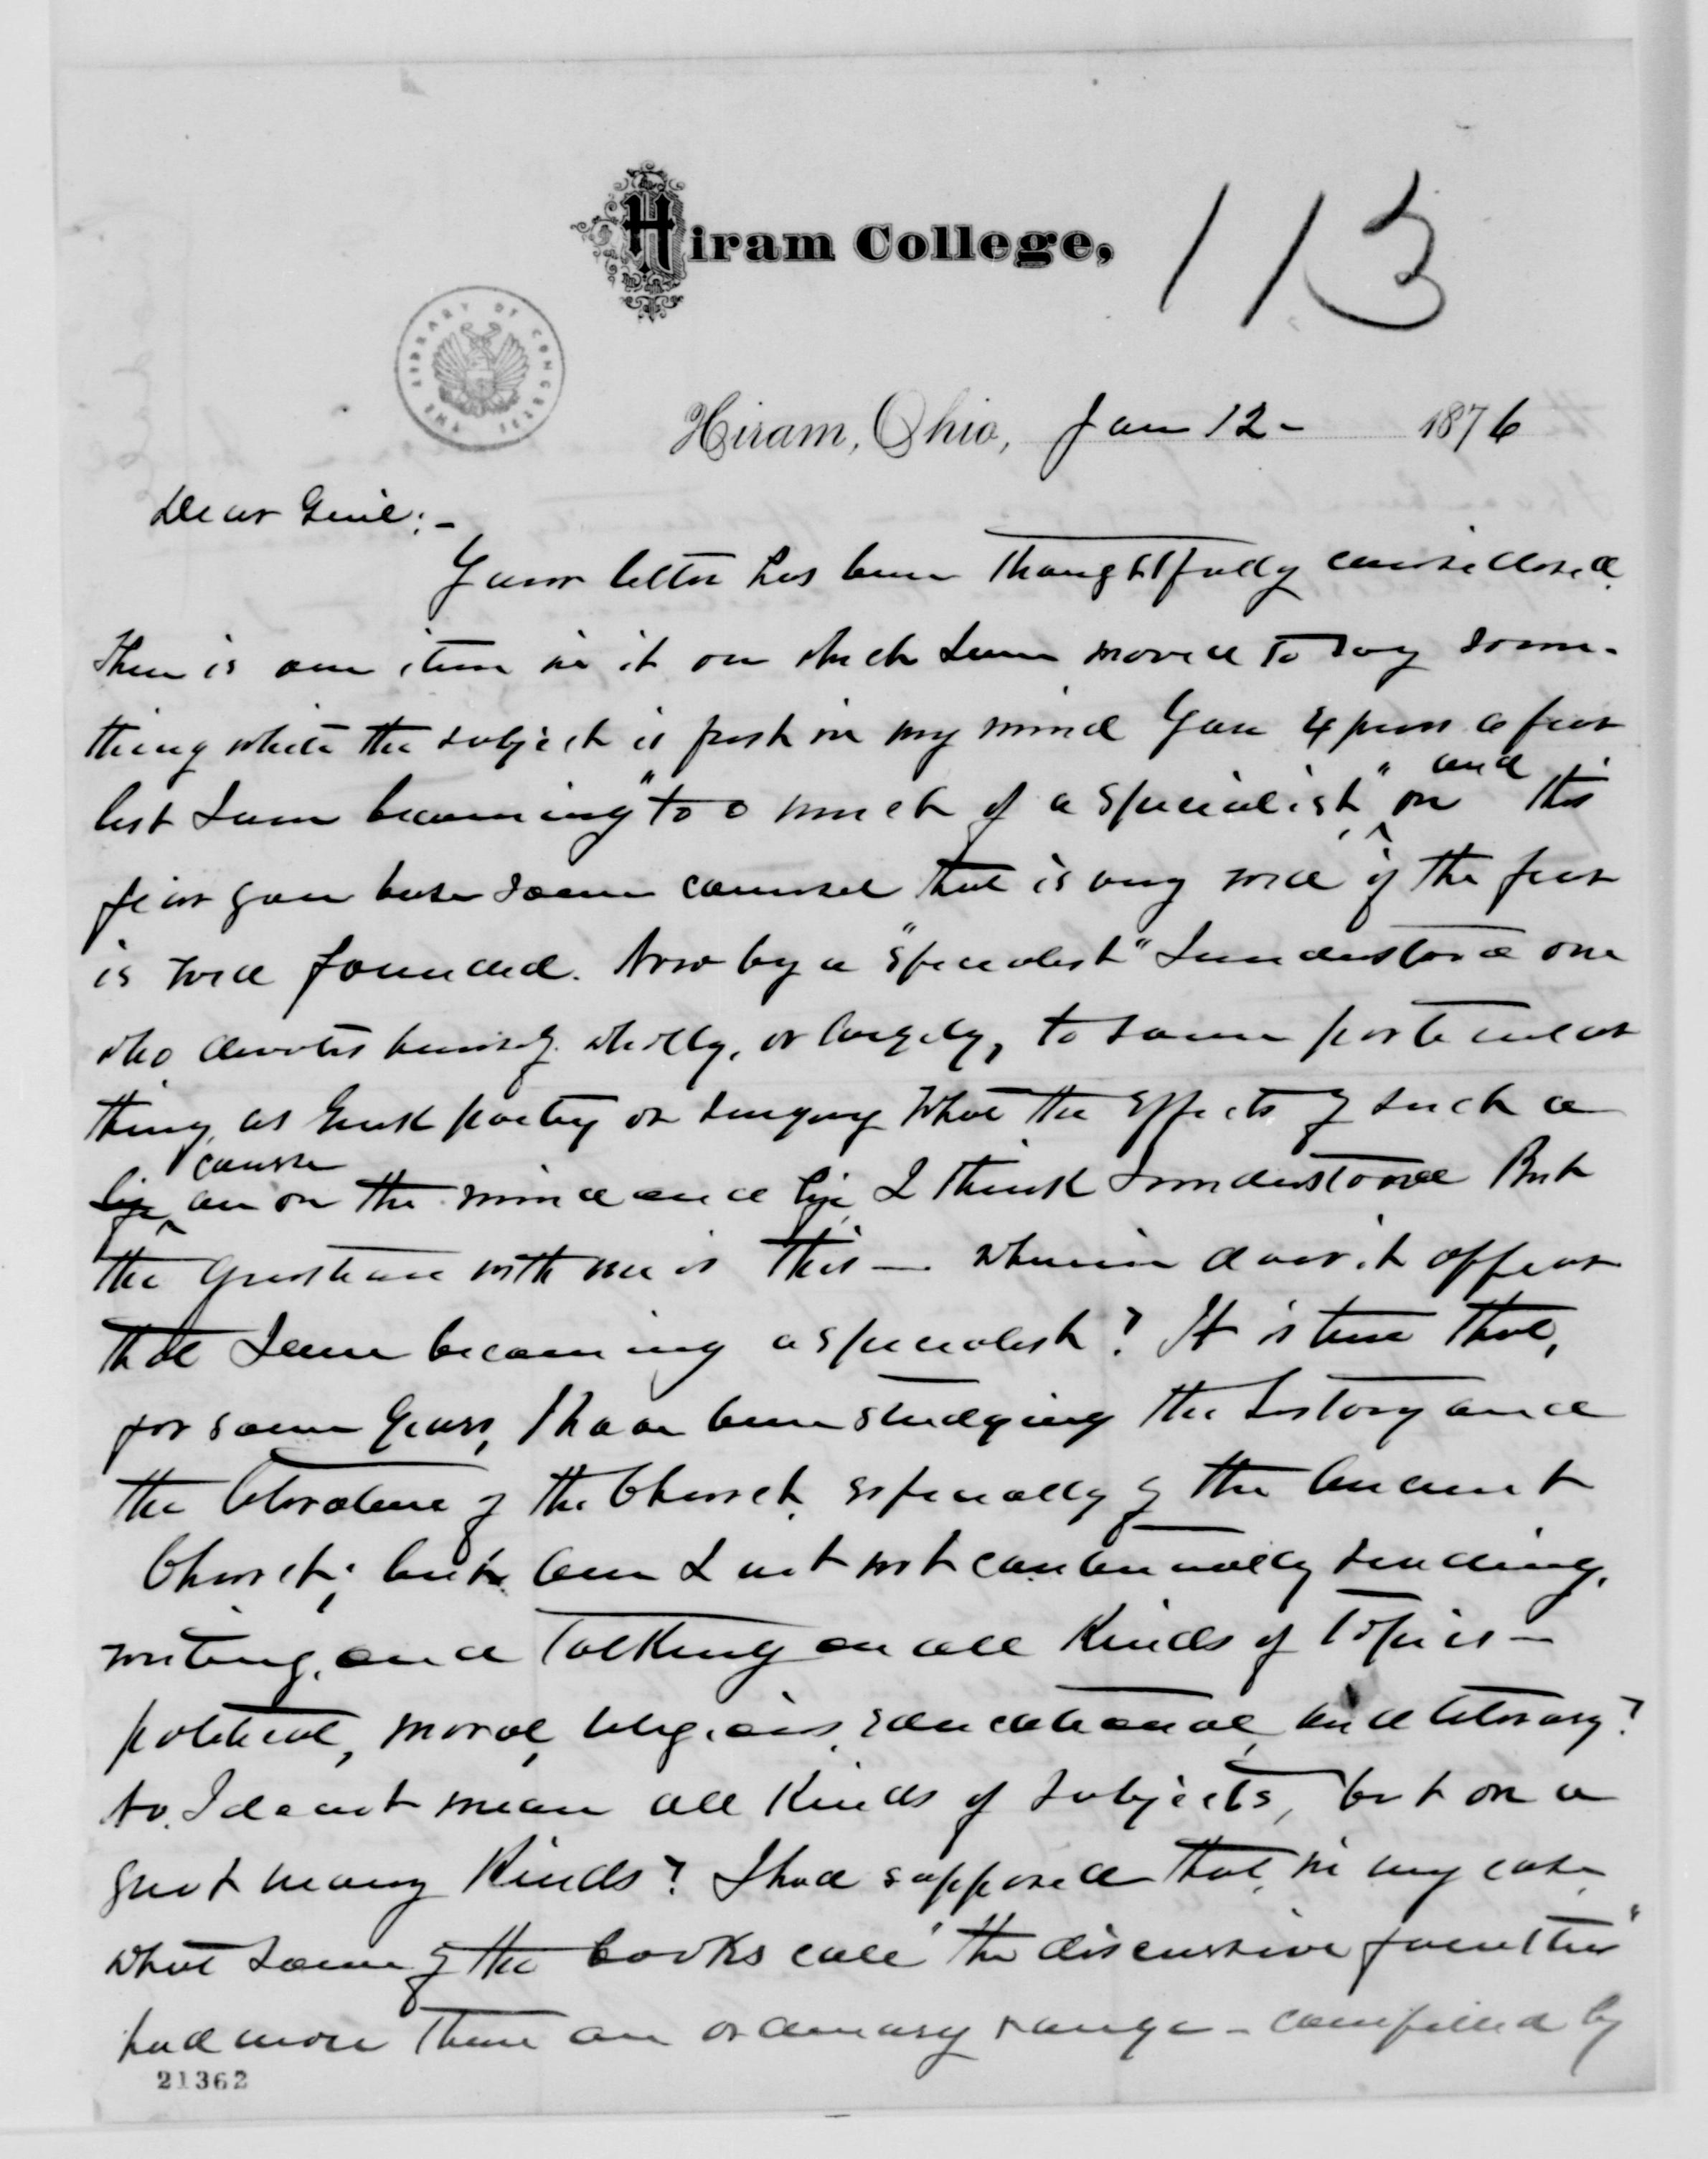 Hiram College,
113
THE LIBRARY OF CONGRESS
Hiram, Ohio, Jan 12- 1876
Dear Genl:-
Your letter has been thoughtfully considered.
There is one item in it on which I am moved to say some-
thing while the subject is fresh in my mind You express a fear
lest I am becoming "too much of a specialist", and on this
fear you base some counsel that is very well if the fear
is well founded. Now by a "specialist" I understand one
who devotes himself wholly, or largely, to some particular
thing, as Greek poetry or singing What the effects of such a
life course are on the mind and life, I think I understand But
the question with me is this — wherein does it appear
that I am becoming a specialist? It is true that,
for some years, I have been studying the history and
the literature of the Church, especially of the Ancient
Church; but am I not continually reading,
writing, and talking on all kinds of topics —
political, moral, religious, educational, and literary?
No, I do not mean all kinds of subjects, but on a
great many kinds? I had supposed that, in my case,
what some of the books call "the discursive faculties"
had more than an ordinary range - compelled by
21362